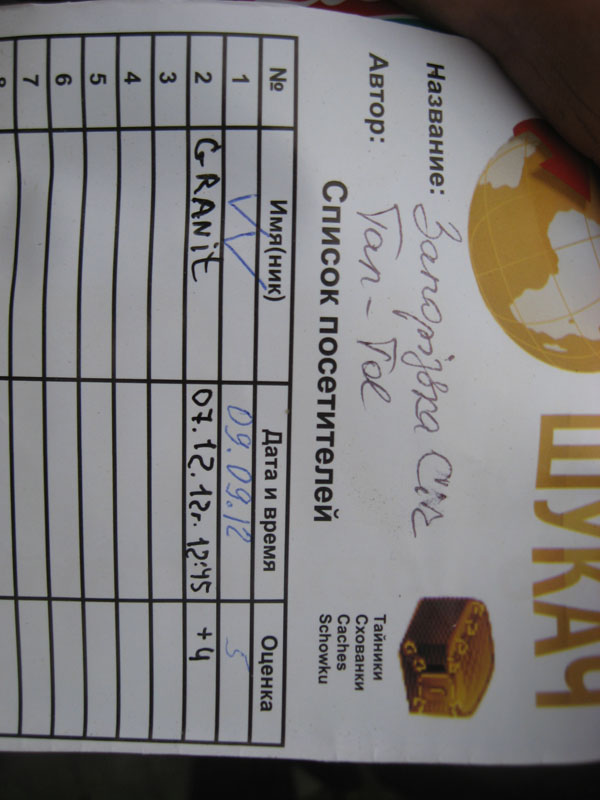 ШУКАЧ
Тайники
Схованки
Caches
Schowku
Название: Запорізька Січ
Автор: Тап-Тое
Список посетителей
№ Имя(ник) Дата и время Оценка
1 W 09.09.12 5
2 GRANit 07.12.12г. 12:45 +4
3
4
5
6
7